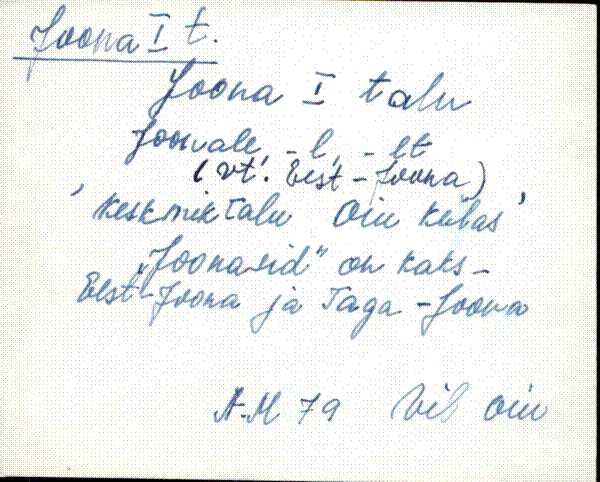 Joona I t.
Joona I talu
Joonale, -l, -lt
(vt. Eest-Joona)
' keskmiktalu Oiu külas '
"Joonasid" on kaks -
Eest-Joona ja Taga-Joona
A.M 79 Vil Oiu